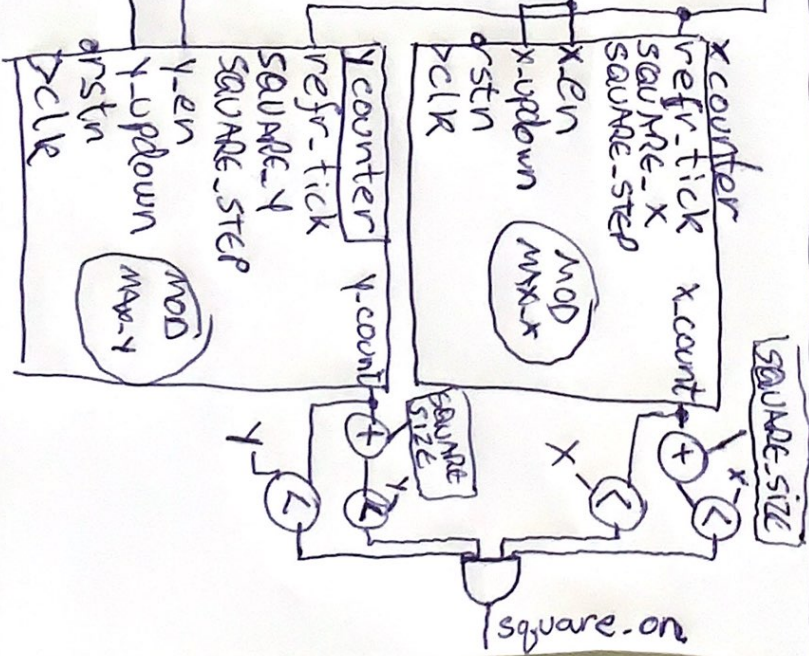 x_counter
refr_tick
SQUARE_X
SQUARE_STEP
x_en
x_updown
rstn
clk
MOD
MAX_X
x_count
y counter
refr_tick
SQUARE_Y
SQUARE_STEP
y_en
y_updown
rstn
clk
MOD
MAX_Y
y_count
SQUARE_SIZE
+
x
<
X
<
SQUARE
SIZE
+
y
<
Y
<
square_on